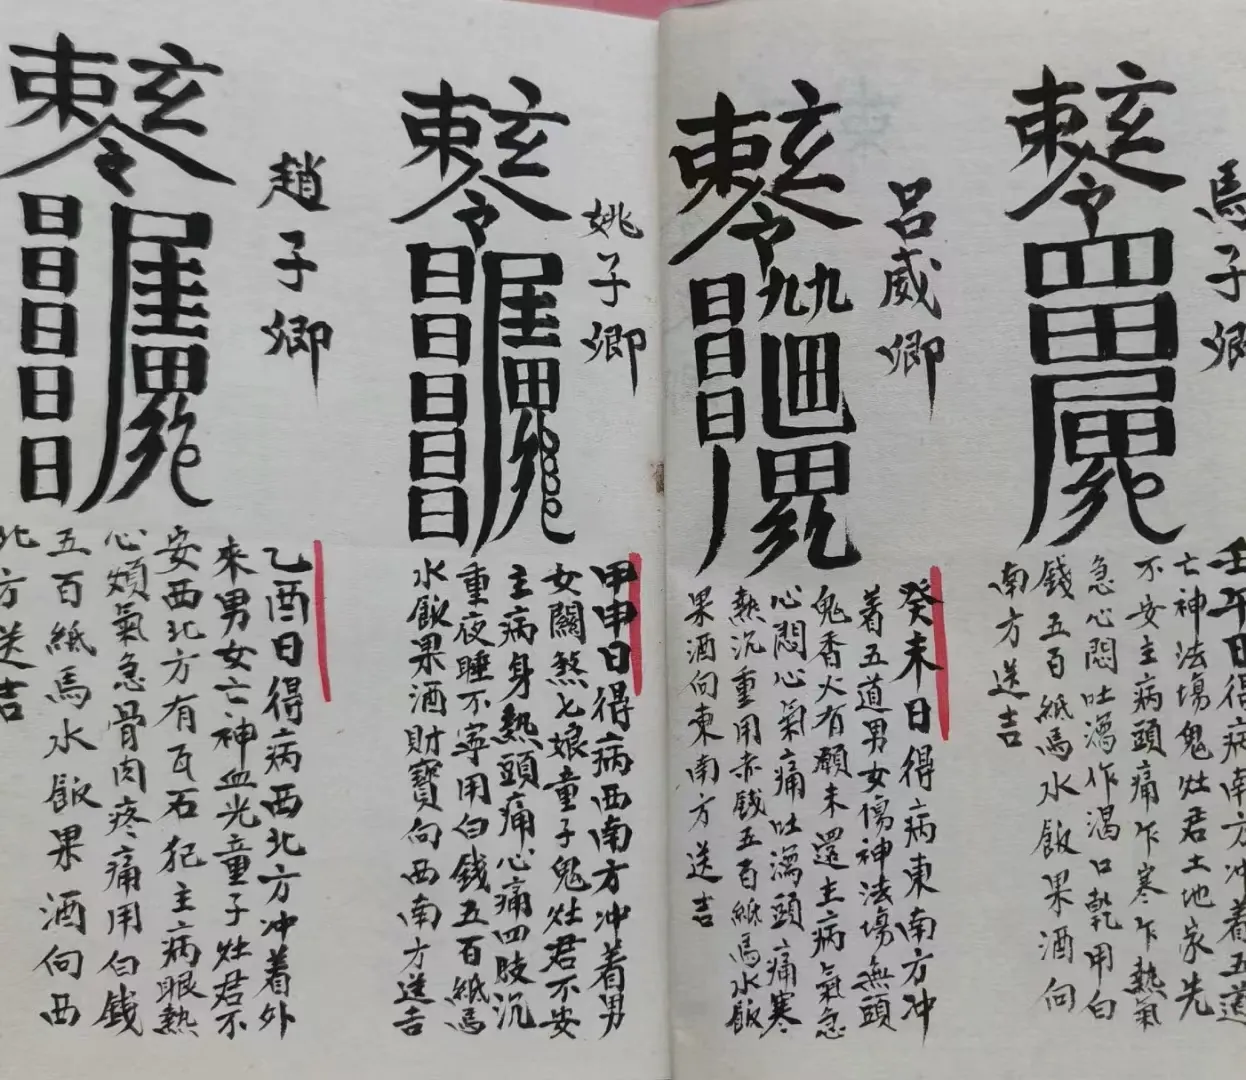 馬子卿
壬午日得病南方冲着五道
亡神法塲鬼灶君土地家先
不安主病頭痛乍寒乍熱氣
急心悶吐瀉作渴口乾用白
錢五百紙馬水飯果酒向
南方送吉
呂威卿
癸未日得病東南方冲
着五道男女傷神法塲無頭
鬼香火有願未還主病氣急
心悶心氣痛吐瀉頭痛寒
熱沉重用赤錢五百紙馬水飯
果酒向東南方送吉
姚子卿
甲申日得病西南方冲着男
女關煞七娘童子鬼灶君不安
主病身熱頭痛心痛四肢沉
重夜睡不寧用白錢五百紙馬
水飯果酒財寶向西南方送吉
趙子卿
乙酉日得病西北方冲着外
來男女亡神血光童子灶君不
安西北方有瓦石犯主病眼熱
心煩氣急骨肉疼痛用白錢
五百紙馬水飯果酒向西
北方送吉